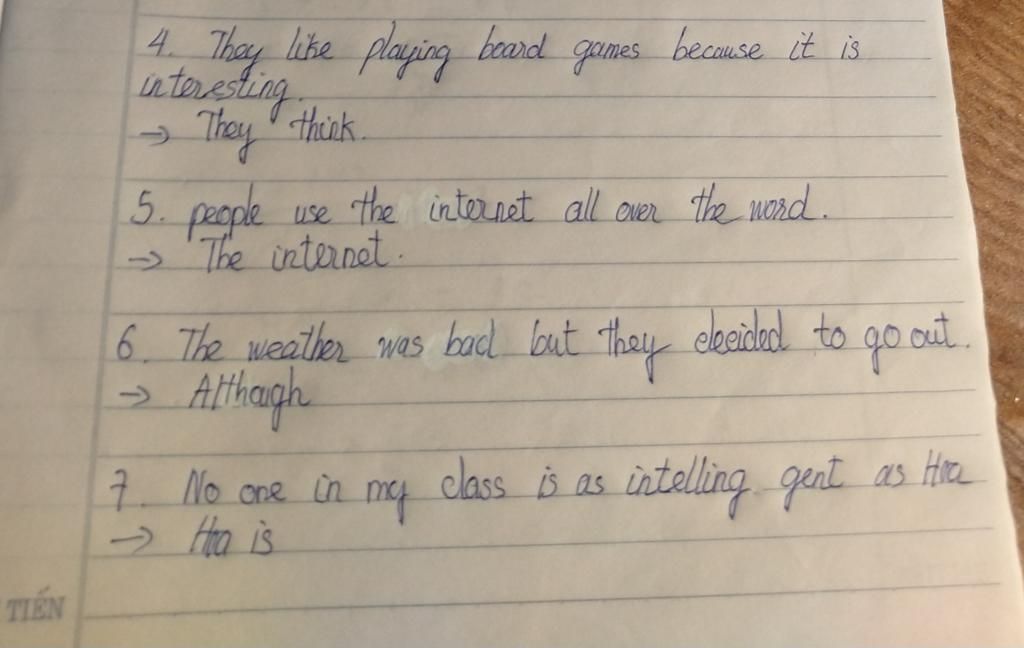 4. They like playing board games because it is
interesting.
→ They think.
5. people use the internet all over the word.
→ The internet.
6. The weather was bad but they decided to go out.
→ Although
7. No one in my class is as intelling gent as Hoa
→ Hoa is
TIẾN